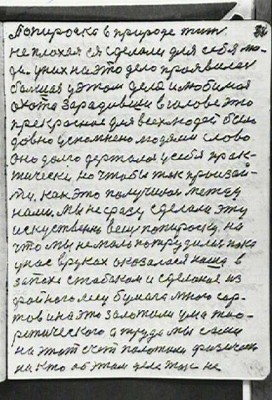 Попироска в природе тип
не плохая ся сделали для себя лю
ди. у них на это дело проявилась
большая у этом деле и любимая
охота Зарадивши в голове это
прекрасное для всех людей было
довно успомнено людями слово
оно долго держалося у себя прак
тически, но чтобы так произой
ти, как это получилось между
нами. мы не разу сделали эту
искуственую вещ попироску, на
что мы не мало потрудились пока
у нас в руках оказалася наша в
запасе с табаком и сделаная из
бумага много сор
тов и на это заложили ума тио
ретического а труда мы сами
на этот счот положили физически
никто об этом деле так не